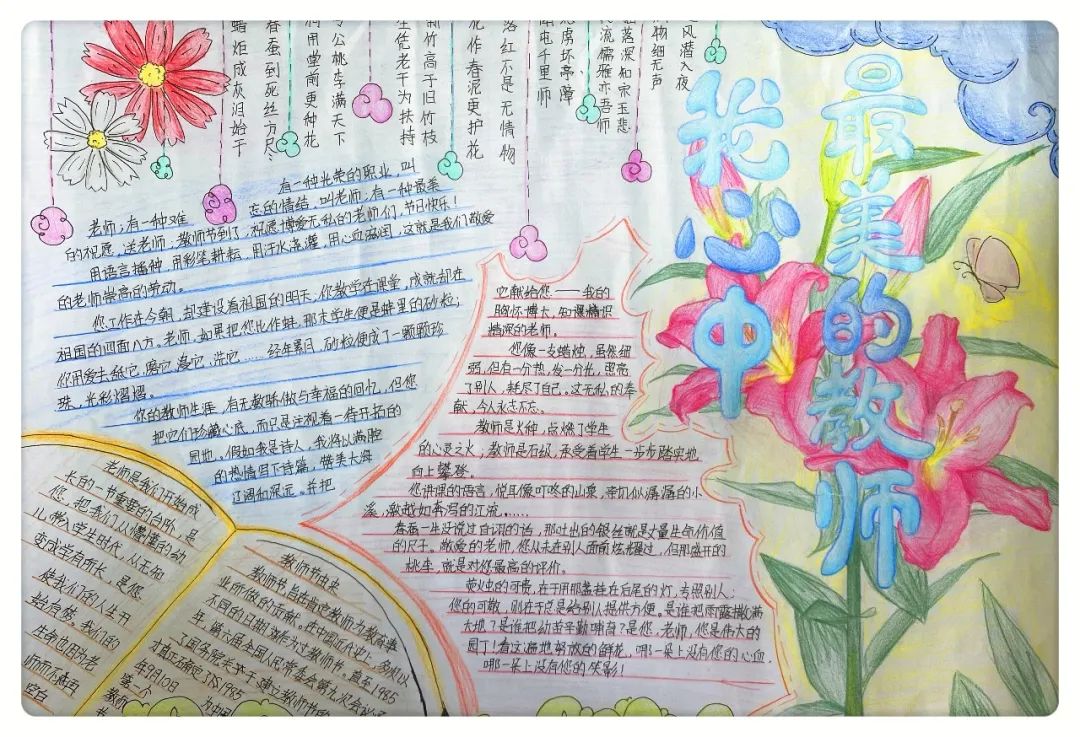 我心中
最美的教师
风潜入夜
物细无声
落深知宋玉悲
流儒雅亦吾师
虏坏亭障
屯千里师
落红不是无情物
化作春泥更护花
新竹高于旧竹枝
凭老干为扶持
公桃李满天下
用堂前更种花
春蚕到死丝方尽
蜡炬成灰泪始干
有一种光荣的职业，叫
老师；有一种难忘的情结，叫老师；有一种最美
的祝愿，送老师，教师节到了，祝愿博爱无私的老师们，节日快乐！
用语言播种，用彩笔耕耘，用汗水浇灌，用心血滋润，这就是我们敬爱
的老师崇高的劳动。
您工作在今朝，却建设着祖国的明天；你教学在课堂，成就却在
祖国的四面八方。老师，如果把您比作蚌，那末学生便是蚌里的砂粒；
你用爱去舐它，磨它，浸它，洗它……经年累月，砂粒便成了一颗颗珍
珠，光彩熠熠。
你的教师生涯，有无数骄傲与幸福的回忆，但您
把它们珍藏心底，而只是注视着一待开拓的
园地。假如我是诗人，我将以满腔
的热情写下诗篇，赞美大海
辽阔和深远。并把
它献给您——我的
胸怀博大，知识
精深的老师。
您像一支蜡烛，虽然细
弱，但有一分热，发一分光，照亮
了别人，耗尽了自己。这无私的奉
献，令人永志不忘。
教师是火种，点燃了学生
的心灵之火，教师是石级，承受着学生一步步踏实地
向上攀登。
您讲课的语言，悦耳像叮咚的山泉，亲切似潺潺的小
溪，激越如奔泻的江流……
春蚕一生没说过自诩的话，那吐出的银丝就是丈量生命价值
的尺子。敬爱的老师，您从未在别人面前炫耀过，但那盛开的
桃李，就是对您最高的评价。
萤火虫的可贵，在于用那盏挂在后尾的灯，专照别人；
您的可敬，则在于总是给别人提供方便。是谁把雨露撒满
大地？是谁把幼苗辛勤哺育？是您，老师，您是伟大的
园丁！看这遍地努放的鲜花，哪一朵上没有您的心血，
哪一朵上没有您的笑影！
老师是我们开始成
长的一节重要的台阶，是
您，把我们从懵懂的幼
儿带入学生时代，从无知
变成学有所长，是您
使我们的人生开
始启航。我们的
生命也因为老
师而不在因
空白
教师节由来
教师节旨在肯定教师为教育事
业所做的贡献。在中国近代史上，多次以
不同的日期作为过教师节。直至1985
年，第六届全国人民常委会第九次会议
了国务院关于建立教师节的
才真正确定了1985
年9月10日
为中国
教师
节